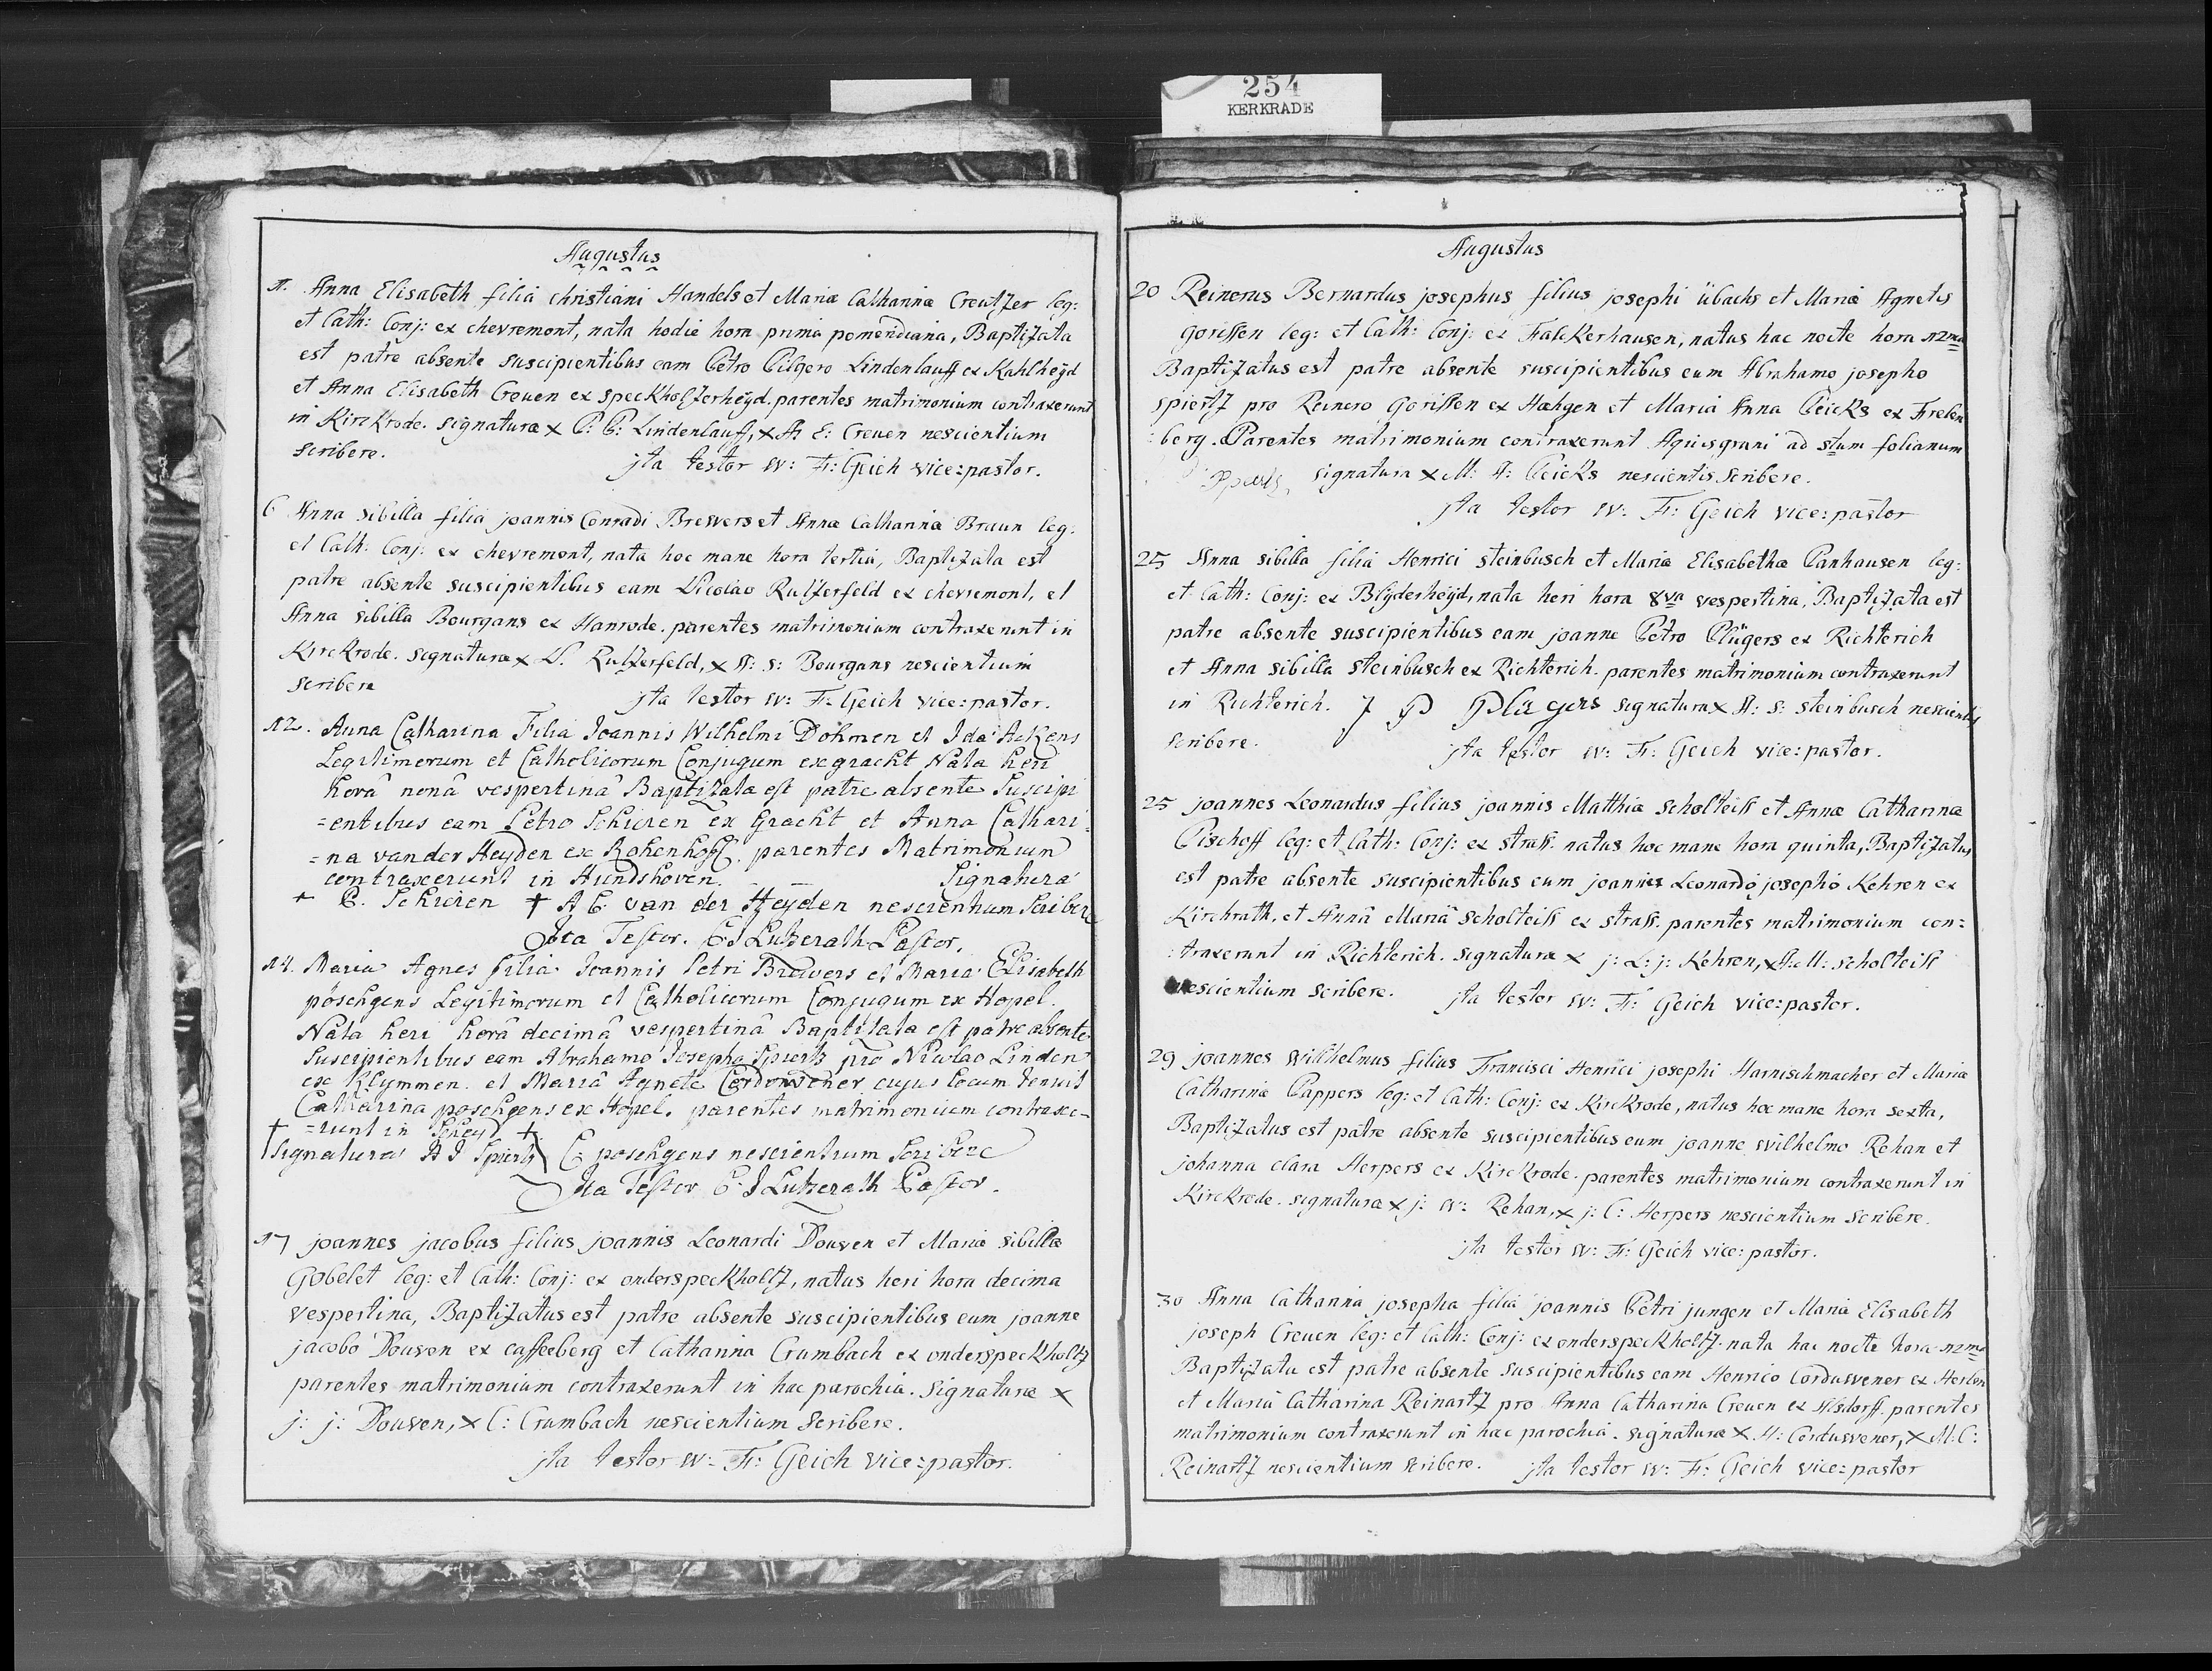 254
KERKRADE
Augustus
Anna Elisabeth filia christiani Handels et Mariæ Catharinæ Creutzer leg:
et Cath: Conj: ex chevremont, nata hodie hora prima pomeridiana, Baptizata
est patre absente suscipientibus eam Petro Pilgero Lindenlauff ex Kahlheÿd
et Anna Elisabeth Creuen ex speckholzerheÿd. parentes matrimonium contraxerunt
in Kirckrode. signaturæ x P: P: Lindenlauff, x A: E: Creuen nescientium
scribere. jta testor W: Fr: Geich vice=pastor.
6 Anna sibilla filia joannis Conradi Brewers et Annæ Catharinæ Braun leg:
et Cath: Conj: ex chevremont, nata hoc mane hora tertia, Baptizata est
patre absente suscipientibus eam Nicolao Rulzerfeld ex chevremont, et
Anna sibilla Bourgans ex Hanrode. parentes matrimonium contraxerunt in
Kirckrode. signaturæ x N. Rulzerfeld, x A: s: Bourgans nescientium
scribere jta testor W: Fr: Geich vice=pastor.
12. Anna Catharina Filia Joannis Wilhelmi Dohmen et Ida Ackens
Legitimorum et Catholicorum Conjugum ex gracht Nata heri
horâ nonâ vespertinâ Baptizata est patre absente Suscipi
=entibus eam Petro Schieren ex Gracht et Anna Cathari=
=na vander Heyden ex Rohenhoff. parentes Matrimonium
contraxerunt in Hundshoven. Signatura
+ P. Schieren + A C. van der Heyden nescientium Scribere
Ita Testor. P J Lutzerath Pastor.
14. Maria Agnes filia Joannis Petri Brewers et Maria Elisabeth
pöschgens Legitimorum et Catholicorum Conjugum ex Hopel.
Nata heri horâ decimâ vespertinâ Baptizata est patre absente
Suscipientibus eam Abrahamo Josepho Spiertz pro Nicolao Linden
ex Klymmen. et Mariâ Agnete Cordonwener cujus locum tenuit
Catharina poschgens ex Hopel. parentes matrimonium contraxe-
+ =runt in +
Signatura A J Spiertz C poschgens nescientium Scribere
Ita Testor P. J Lutzerath Pastor.
17 joannes jacobus filius joannis Leonardi Douven et Mariæ sibillæ
Gobelet leg: et Cath: Conj: ex onderspeckholtz, natus heri hora decima
vespertina, Baptizatus est patre absente suscipientibus eum joanne
jacobo Douven ex caffeeberg et Catharina Crumbach ex onderspeckholtz
parentes matrimonium contraxerunt in hac parochia. signaturæ x
j: j: Douven, x C: Crumbach nescientium scribere.
jta testor W: Fr: Geich vice=pastor.
Augustus
20 Reinerus Bernardus josephus filius josephi übachs et Mariæ Agnetis
gorissen leg: et Cath: Conj: ex Falckerhausen, natus hac nocte hora 12ma
Baptizatus est patre absente suscipientibus eum Abrahamo josepho
spiertz pro Reinero Gorissen ex Hæhgen et Maria Anna Peicks ex Frelen
=berg. Parentes matrimonium contraxerunt Aquisgrani ad stum foilanum
signatura x M: A: Peicks nescientis scribere.
jta testor W: Fr: Geich vice=pastor
25 Anna sibilla filia Henrici steinbusch et Mariæ Elisabethæ Panhausen leg:
et Cath: Conj: ex Blyderheÿd, nata heri hora 8va vespertina, Baptizata est
patre absente suscipientibus eam joanne Petro Plügers ex Richterich
et Anna sibilla steinbusch ex Richterich. parentes matrimonium contraxerunt
in Richterich. J P Plagers signatura x A: s: steinbusch nescientis
scribere. jta testor W: Fr: Geich vice=pastor.
25 joannes Leonardus filius joannis Matthiæ scholteiss et Annæ Catharinæ
Pischoff leg: et Cath: Conj: ex strass. natus hoc mane hora quinta, Baptizatus
est patre absente suscipientibus eum joannes Leonardo josepho Kehren ex
Kirchrath, et Annâ Mariâ scholteiss ex strass. parentes matrimonium con=
=traxerunt in Richterich. signaturæ x j: L: j: Kehren, x A: M: scholteiss
nescientium scribere. jta testor W: Fr: Geich vice=pastor.
29 joannes Wilhelmus filius Francisci Henrici josephi Harnischmacher et Mariæ
Catharinæ Pappers leg: et Cath: Conj: ex Kirckrode, natus hoc mane hora sexta,
Baptizatus est patre absente suscipientibus eum joanne Wilhelmo Rehan et
johanna clara Herpers ex Kirckrode. parentes matrimonium contraxerunt in
Kirckrode. signaturæ x j: W: Rehan, x j: C: Herpers nescientium scribere.
jta testor W: Fr: Geich vice=pastor.
30 Anna Catharina josepha filia joannis Petri jungen et Mariæ Elisabeth
joseph Creuen leg: et Cath: Conj: ex onderspeckholtz. nata hac nocte hora 12ma
Baptizata est patre absente suscipientibus eam Henrico Corduwener ex Herlen
et Maria Catharina Reinartz pro Anna Catharina Creuen ex Alsdorff. parentes
matrimonium contraxerunt in hac parochia. signaturæ x H: Corduwener, x M: C:
Reinartz nescientium scribere. jta testor W: Fr: Geich vice=pastor